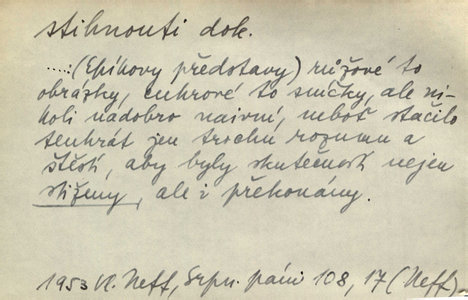 stihnouti dok.
....(Ehíkovy představy) růžové to
obrázky, cukrové to sničky, ale ni-
koli nadobro naivní, neboť stačilo
tenkrát jen trochu rozumu a
štěstí, aby byly skutečností nejen
stiženy, ale i překonány.
1953 Vl. Neff, Srpn. páni 108, 17 (Neff)